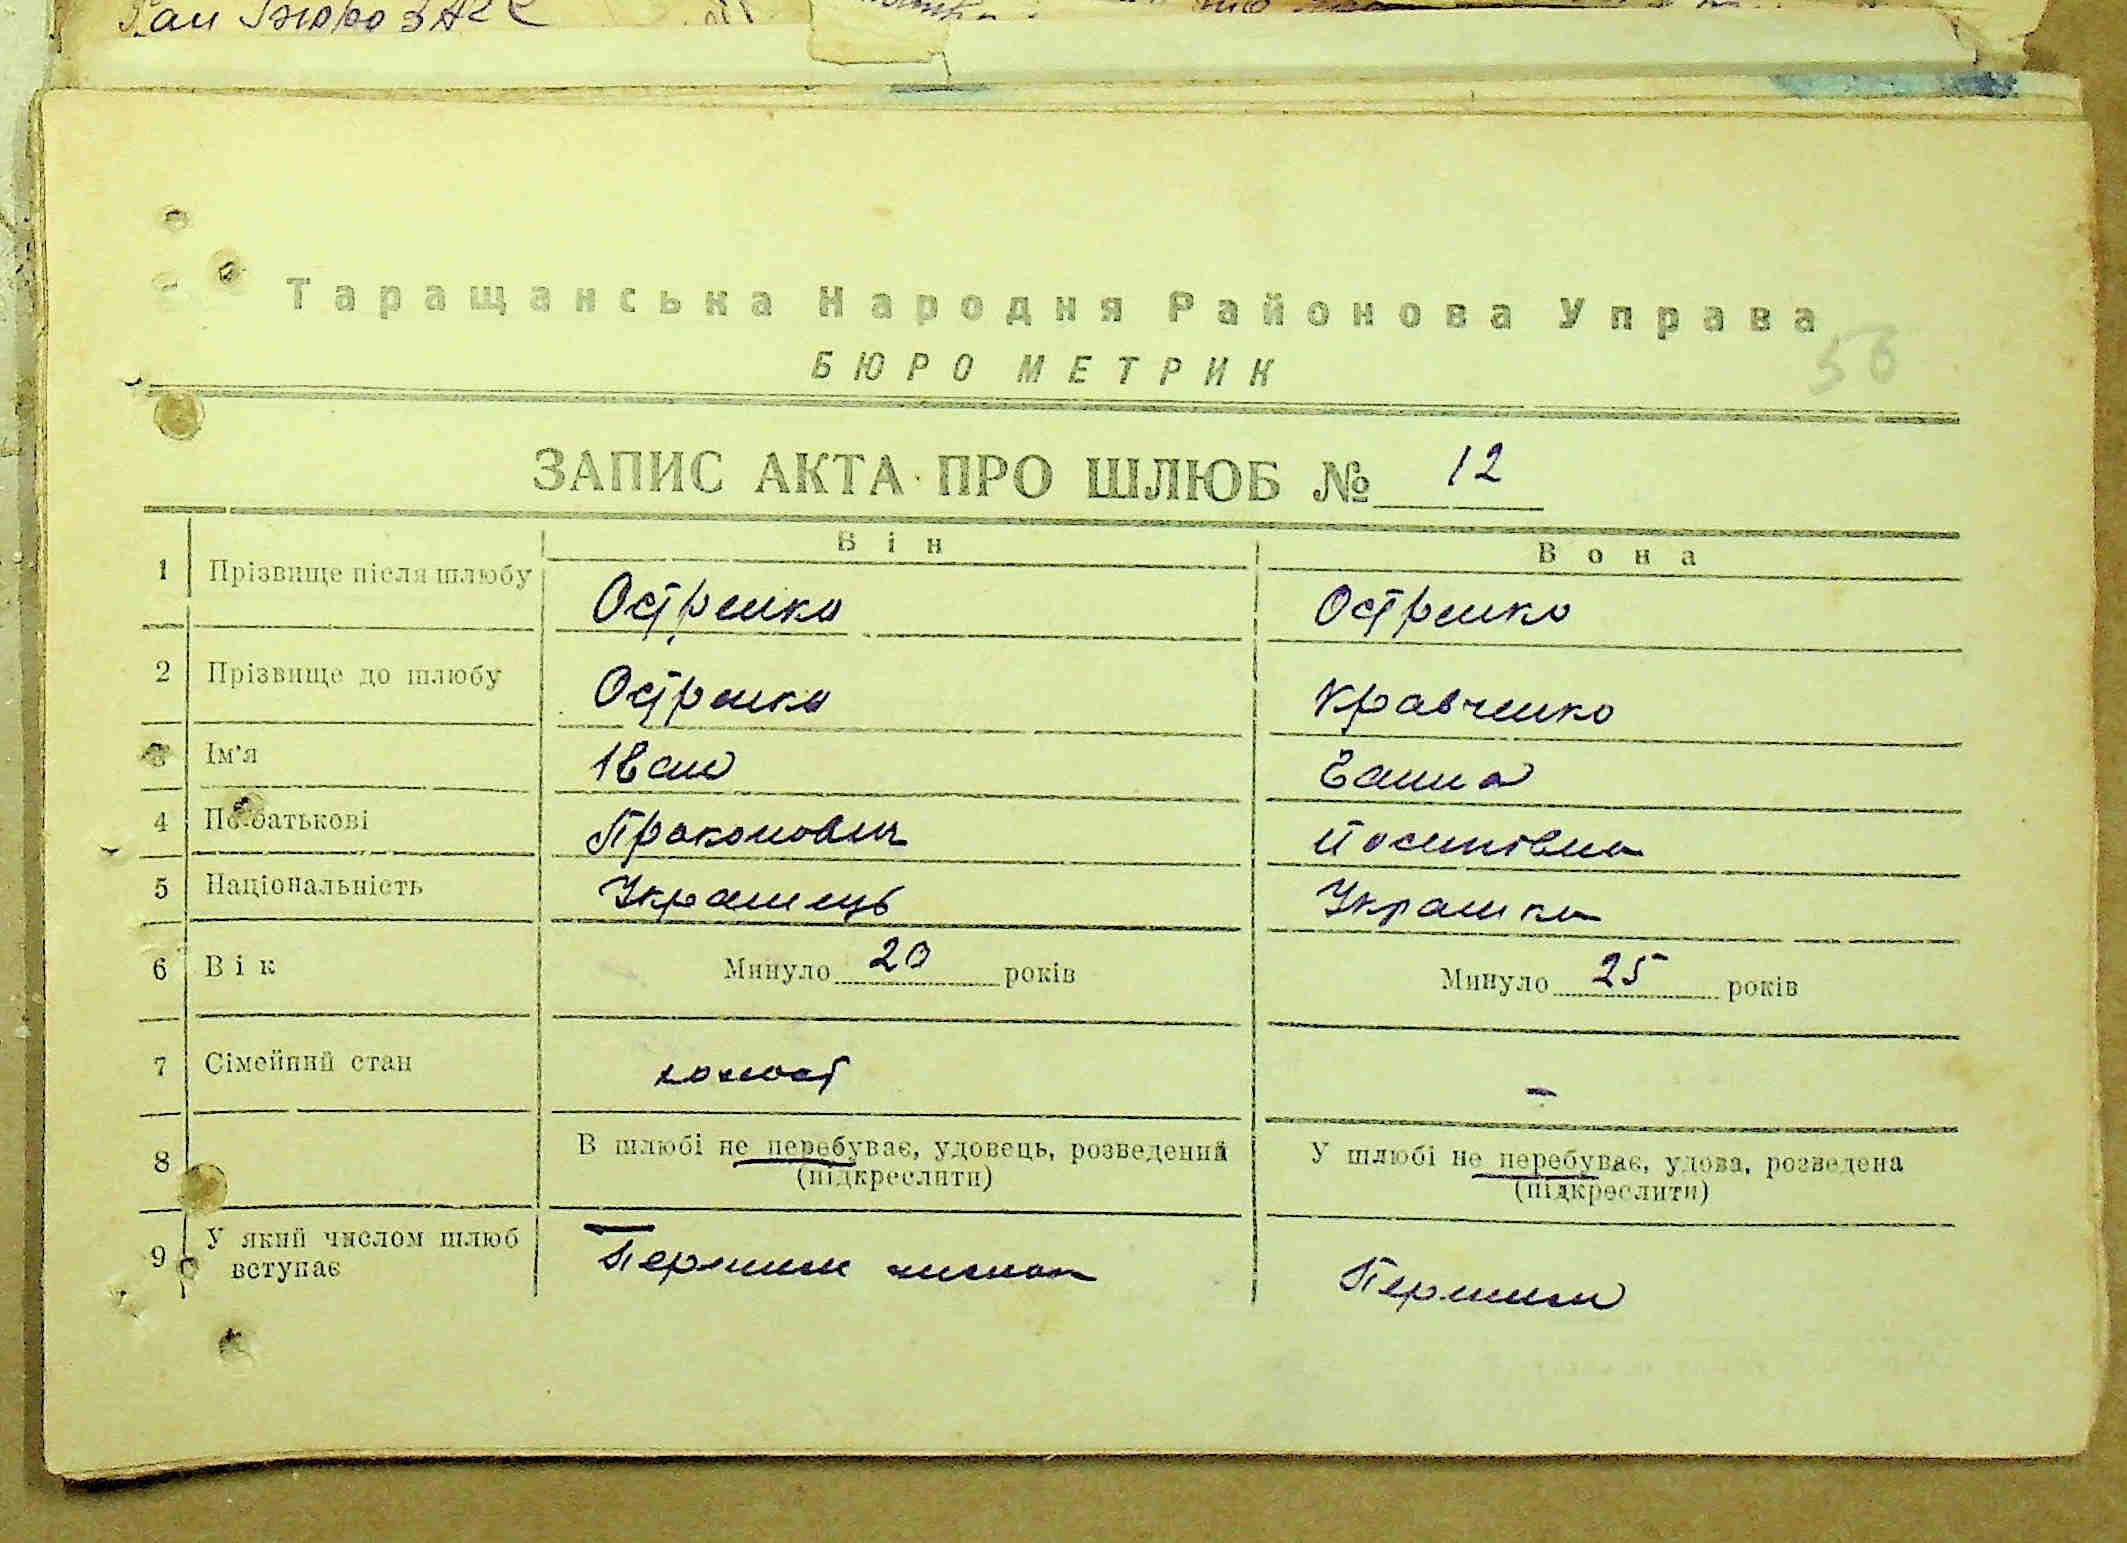 Рай Бюро ЗАГС
Таращанська Народня Районова Управа
56
БЮРО МЕТРИК
ЗАПИС АКТА ПРО ШЛЮБ № 12
Він Вона
1 Прізвище після шлюбу Остренко Остренко
2 Прізвище до шлюбу Остренко Кравченко
3 Ім'я Іван Ганна
4 По батькові Прокопович Йосипівна
5 Національність Українець Українка
6 Вік Минуло 20 років Минуло 25 років
7 Сімейний стан холост –
8 В шлюбі не перебуває, удовець, розведений У шлюбі не перебуває, удова, розведена
(підкреслити) (підкреслити)
9 У який числом шлюб Першим числом Першим
вступає